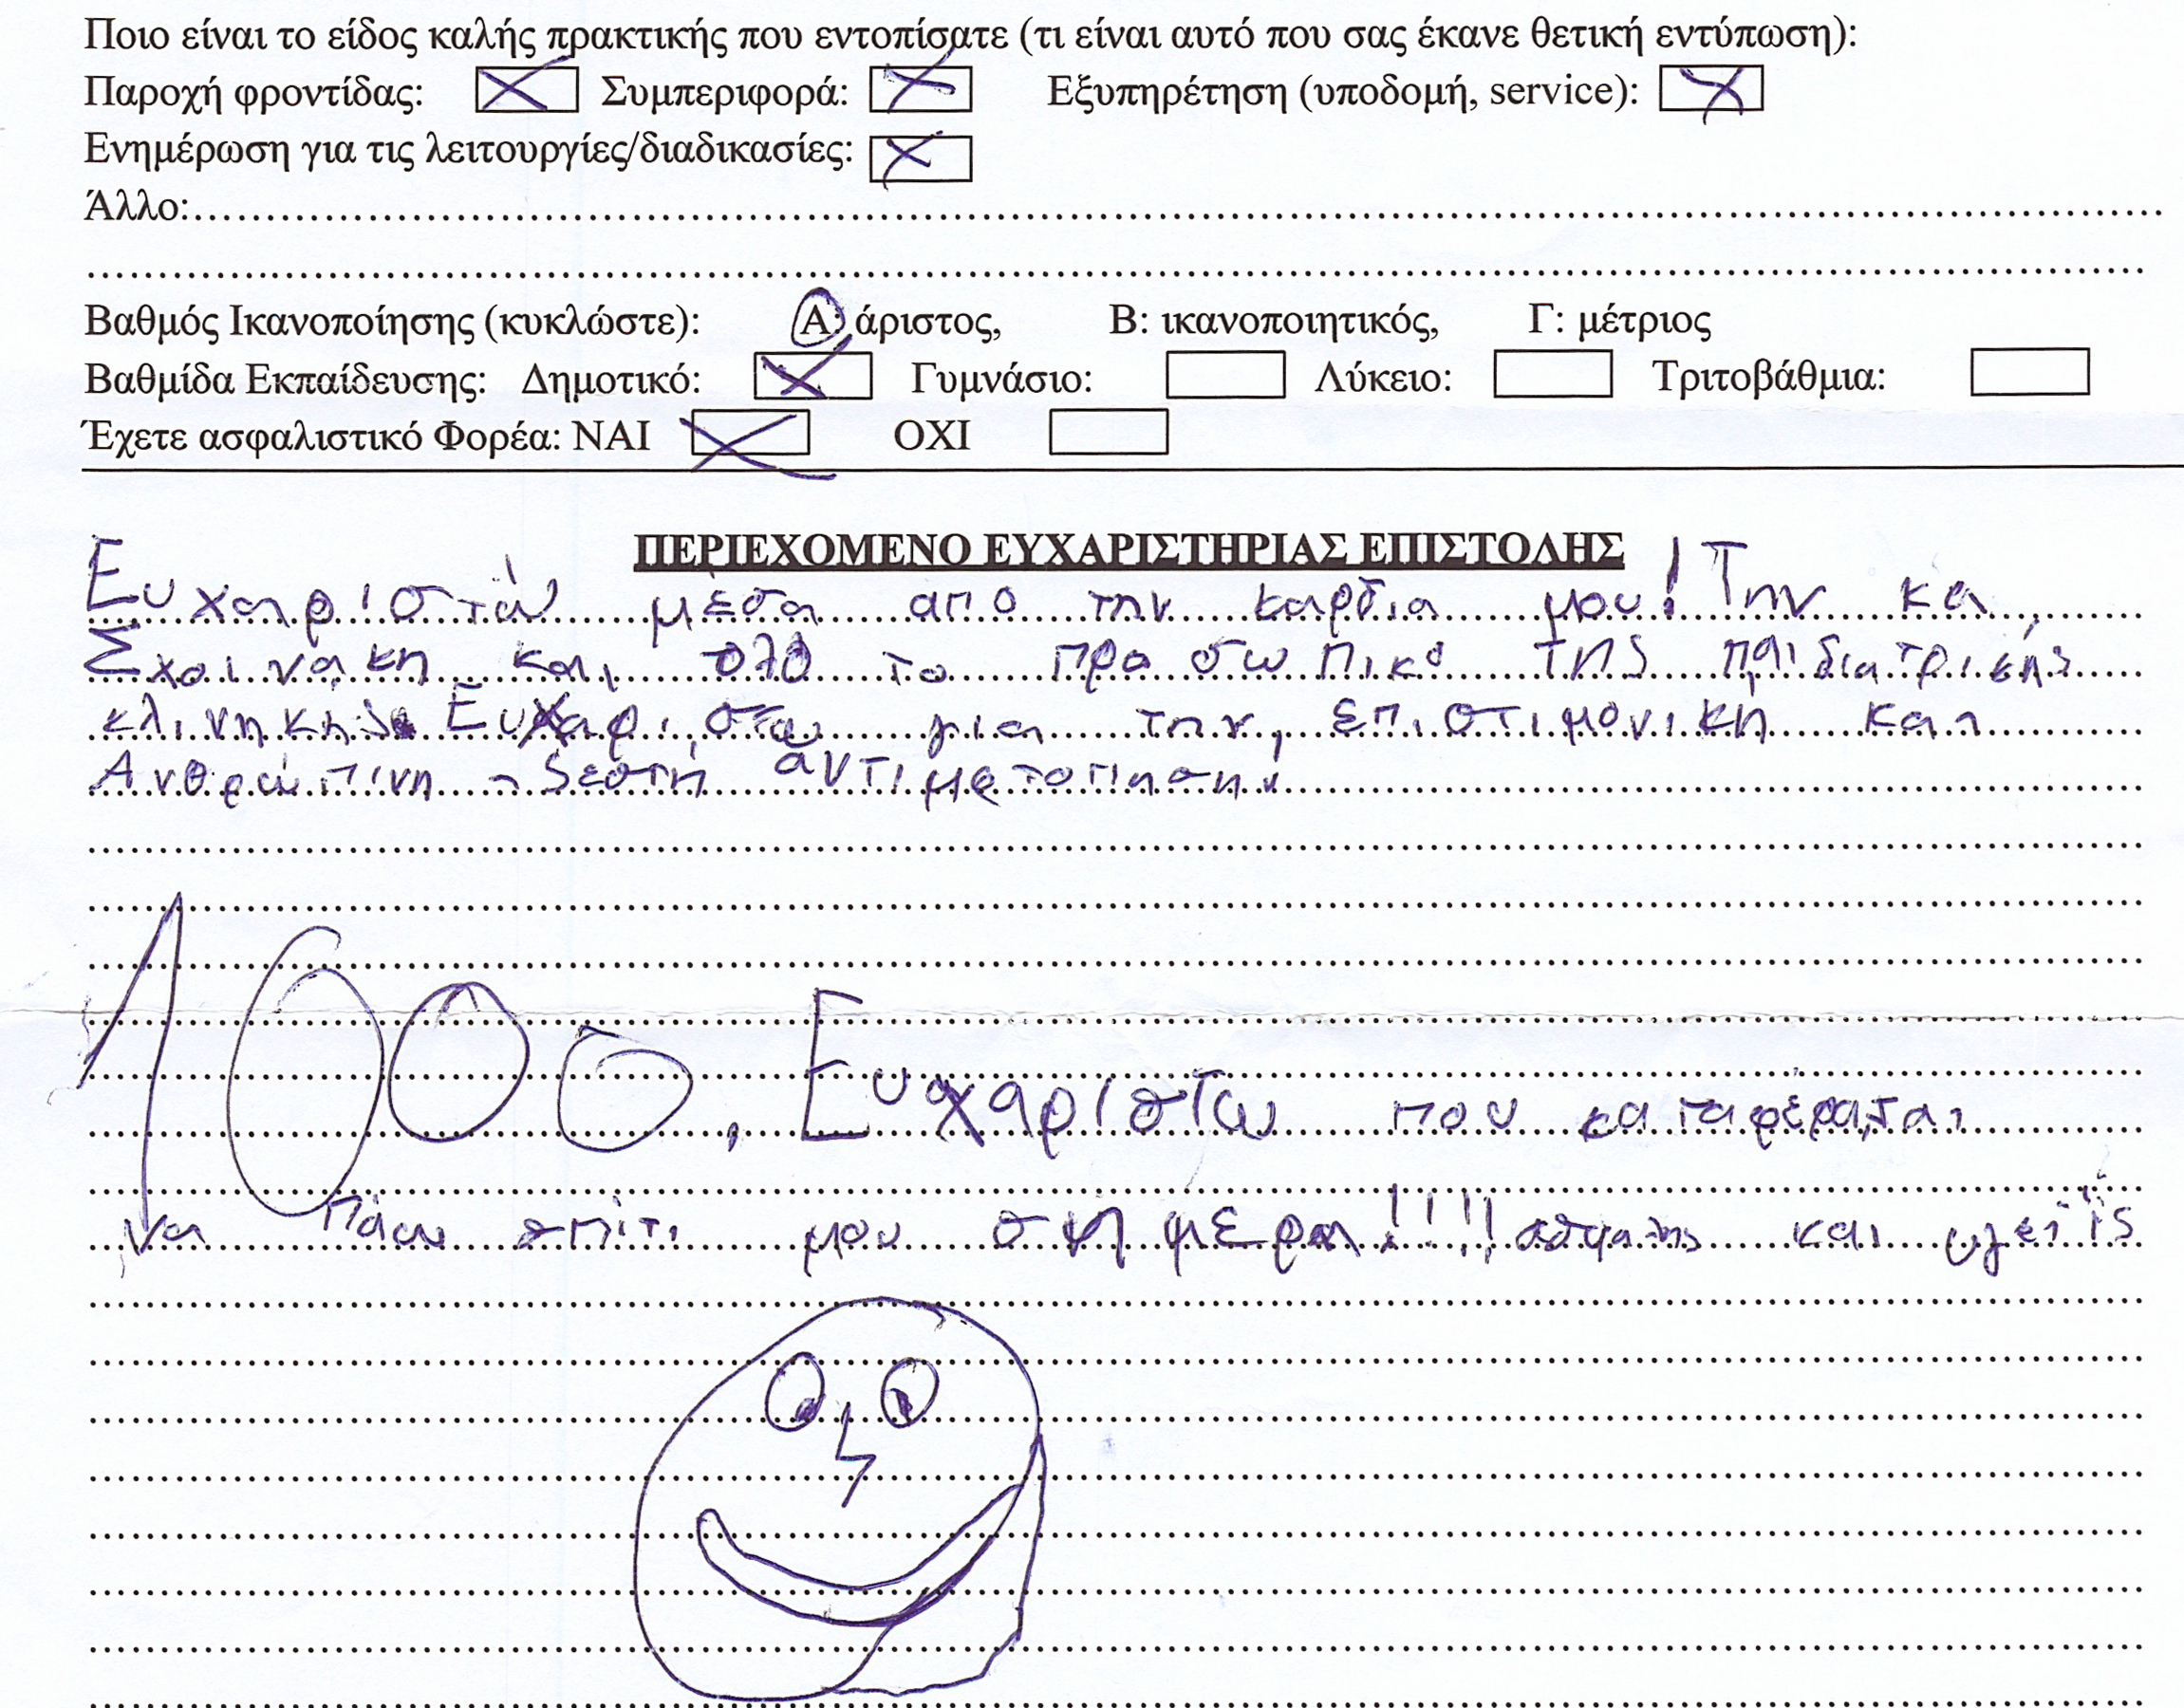 Ποιο είναι το είδος καλής πρακτικής που εντοπίσατε (τι είναι αυτό που σας έκανε θετική εντύπωση):
Παροχή φροντίδας: Συμπεριφορά: Εξυπηρέτηση (υποδομή, service):
Ενημέρωση για τις λειτουργίες/διαδικασίες:
Άλλο:
Βαθμός Ικανοποίησης (κυκλώστε): Α: άριστος, Β: ικανοποιητικός, Γ: μέτριος
Βαθμίδα Εκπαίδευσης: Δημοτικό: Γυμνάσιο: Λύκειο: Τριτοβάθμια:
Έχετε ασφαλιστικό Φορέα: ΝΑΙ ΟΧΙ
ΠΕΡΙΕΧΟΜΕΝΟ ΕΥΧΑΡΙΣΤΗΡΙΑΣ ΕΠΙΣΤΟΛΗΣ
Ευχαριστώ μέσα απο την καρδια μου! Την κα,
Σχοινακη και ολο το προσωπικό της παιδιατρικής
κλινηκής. Ευχαριστω για την, επιστιμονική και
Ανθρώπινη - ζεστή αντιμετοπηση!
1000, Ευχαριστω που καταφέραται
να πάω σπίτι μου σημερα!!!! και υγειϊς